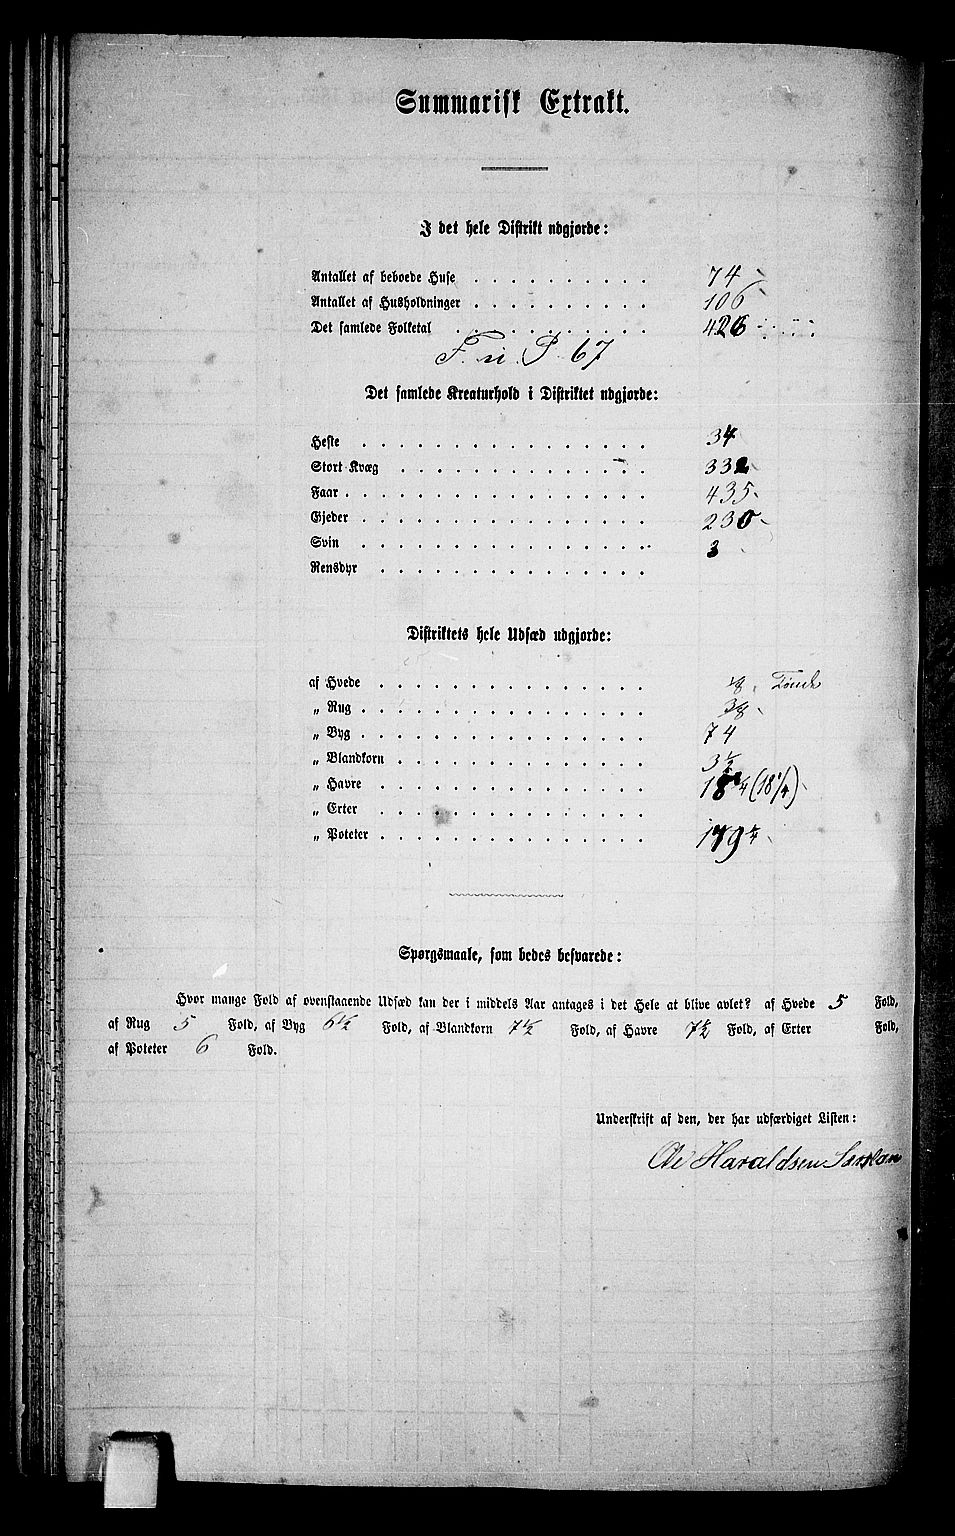 Summarisk Extrakt.
I det hele Distrikt udgjorde:
Antallet af beboede Huse . . . . . . . . . . 74
Antallet af Husholdninger . . . . . . . . . . 106
Det samlede Folketal . . . . . . . . . . . 426
F. i P. 67
Det samlede Kreaturhold i Distriktet udgjorde:
Heste . . . . . . . . . . . . . . . . 34
Stort Kvæg . . . . . . . . . . . . . . 332
Faar . . . . . . . . . . . . . . . . . 435
Gjeder . . . . . . . . . . . . . . . . 230
Svin . . . . . . . . . . . . . . . . 3
Rensdyr . . . . . . . . . . . . . . .
Distriktets hele Udsæd udgjorde:
af Hvede . . . . . . . . . . . . . . . 1/8 Tønde
„ Rug . . . . . . . . . . . . . . . . 3/8
„ Byg . . . . . . . . . . . . . . . . 74
„ Blandkorn . . . . . . . . . . . . . . 3 1/2
„ Havre . . . . . . . . . . . . . . . 18 1/4 (18 1/4)
„ Erter . . . . . . . . . . . . . . .
„ Poteter . . . . . . . . . . . . . . . 179
Spørgsmaale, som bedes besvarede:
Hvor mange Fold af ovenstaaende Udsæd kan der i middels Aar antages i det Hele at blive avlet? af Hvede 5 Fold,
af Rug 5 Fold, af Byg 6 1/2 Fold, af Blandkorn 7 1/2 Fold, af Havre 7 1/2 Fold, af Erter Fold,
af Poteter 6 Fold.
Underskrift af den, der har udfærdiget Listen:
Ole Haraldsen